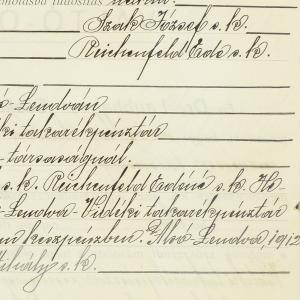 Szak József s.k.
Reichenfeld Ede s.k.
-Lendván
ki takarékpénztár
-társaságnál.
s.k. Reichenfeld Edéné s.k. He-
-Lendva-Vidéki takarékpénztár
készpénzben. Alsó-Lendva, 1912
Mihály s.k.